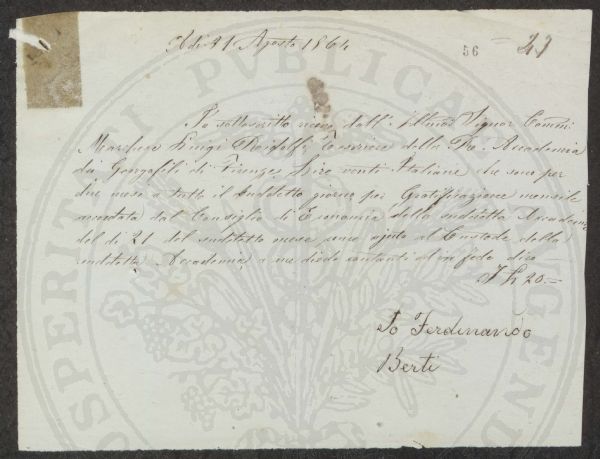 A di 31 Agosto 1864
56 – 23
Io sottoscritto ricevo dall' Illmo Signor Comm:
Marchese Luigi Ridolfi Tesoriere della R. Accademia
dei Georgofili di Firenze Lire venti Italiane che sono per
due mesi a tutto il suddetto giorno per Gratificazione mensile
accordata dal Consiglio di Economia della suddetta Accademia
del di 21 del suddetto mese come ajuto al Custode della
suddetta Accademia a me diede contanti ed in fede dico
£ 20.=
Io Ferdinando
Berti
PROSPERITATI PUBLICAE AUGENDAE